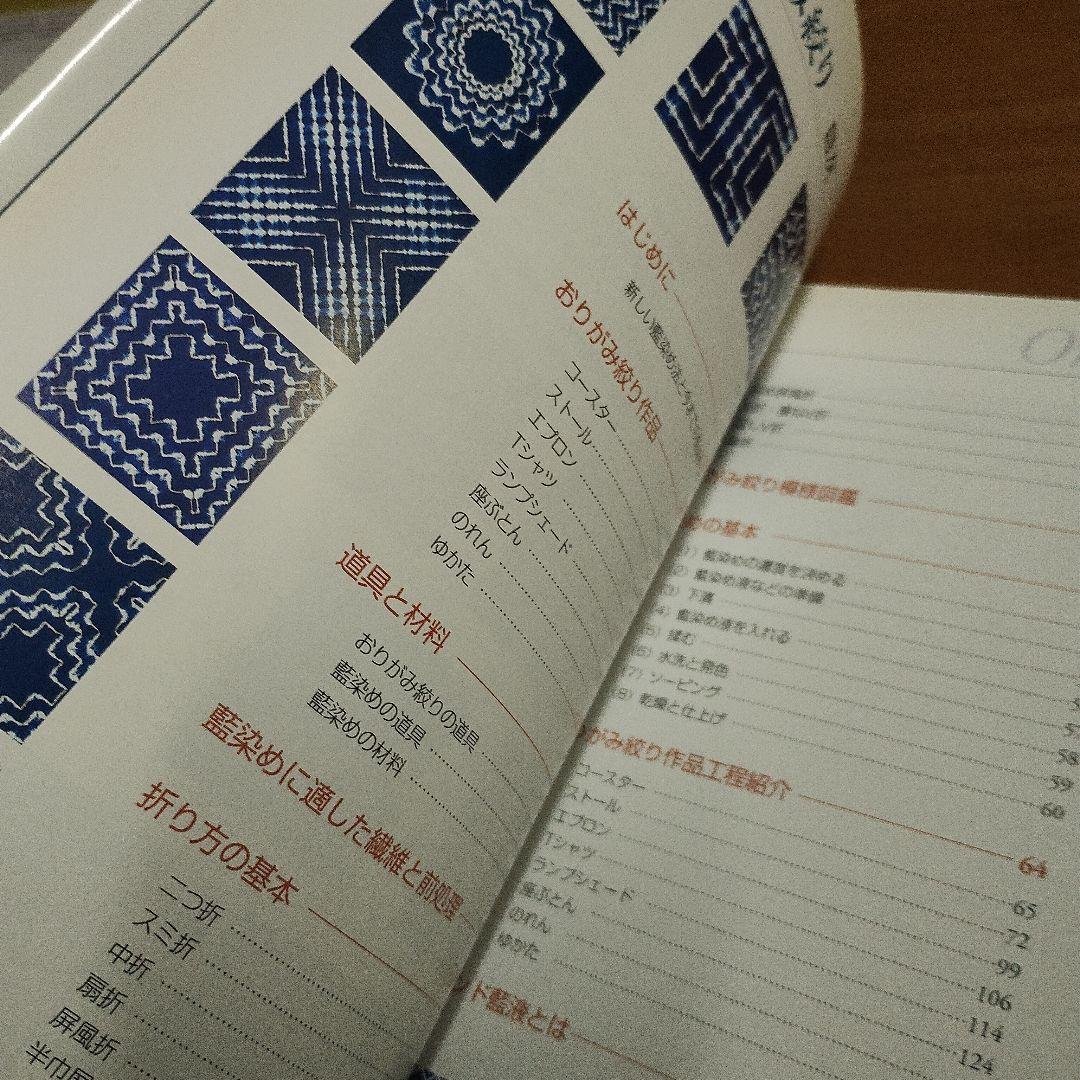 はじめに
新しい藍染め法と
おりがみ絞り作品
コースター
ストール
エプロン
Tシャツ
ランプシェード
座ぶとん
のれん
ゆかた
道具と材料
おりがみ絞りの道具
藍染めの道具
藍染めの材料
藍染めに適した繊維と前処理
折り方の基本
二つ折
スミ折
中折
扇折
屏風折
半巾
がみ絞り模様図鑑
めの基本
1) 藍染めの濃度を決める
2) 藍染め液などの準備
3) 下漬
4) 藍染め液を入れる
5) 揉む
6) 水洗と発色
7) ソーピング
8) 乾燥と仕上げ
57
58
59
60
がみ絞り作品工程紹介 64
コースター 65
ストール 72
エプロン 99
Tシャツ 106
ランプシェード 114
座ぶとん 124
のれん
ゆかた
ンド藍液とは